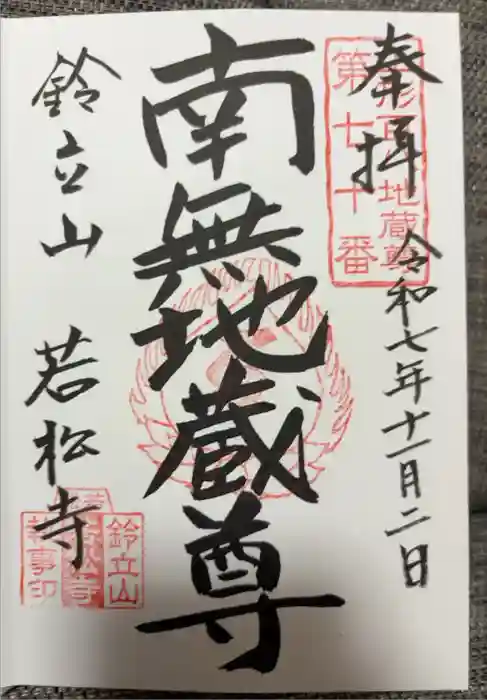 奉拝
令和七年十一月二日
第七十番
地蔵尊
南無地蔵尊
鈴立山 若松寺
鈴立山